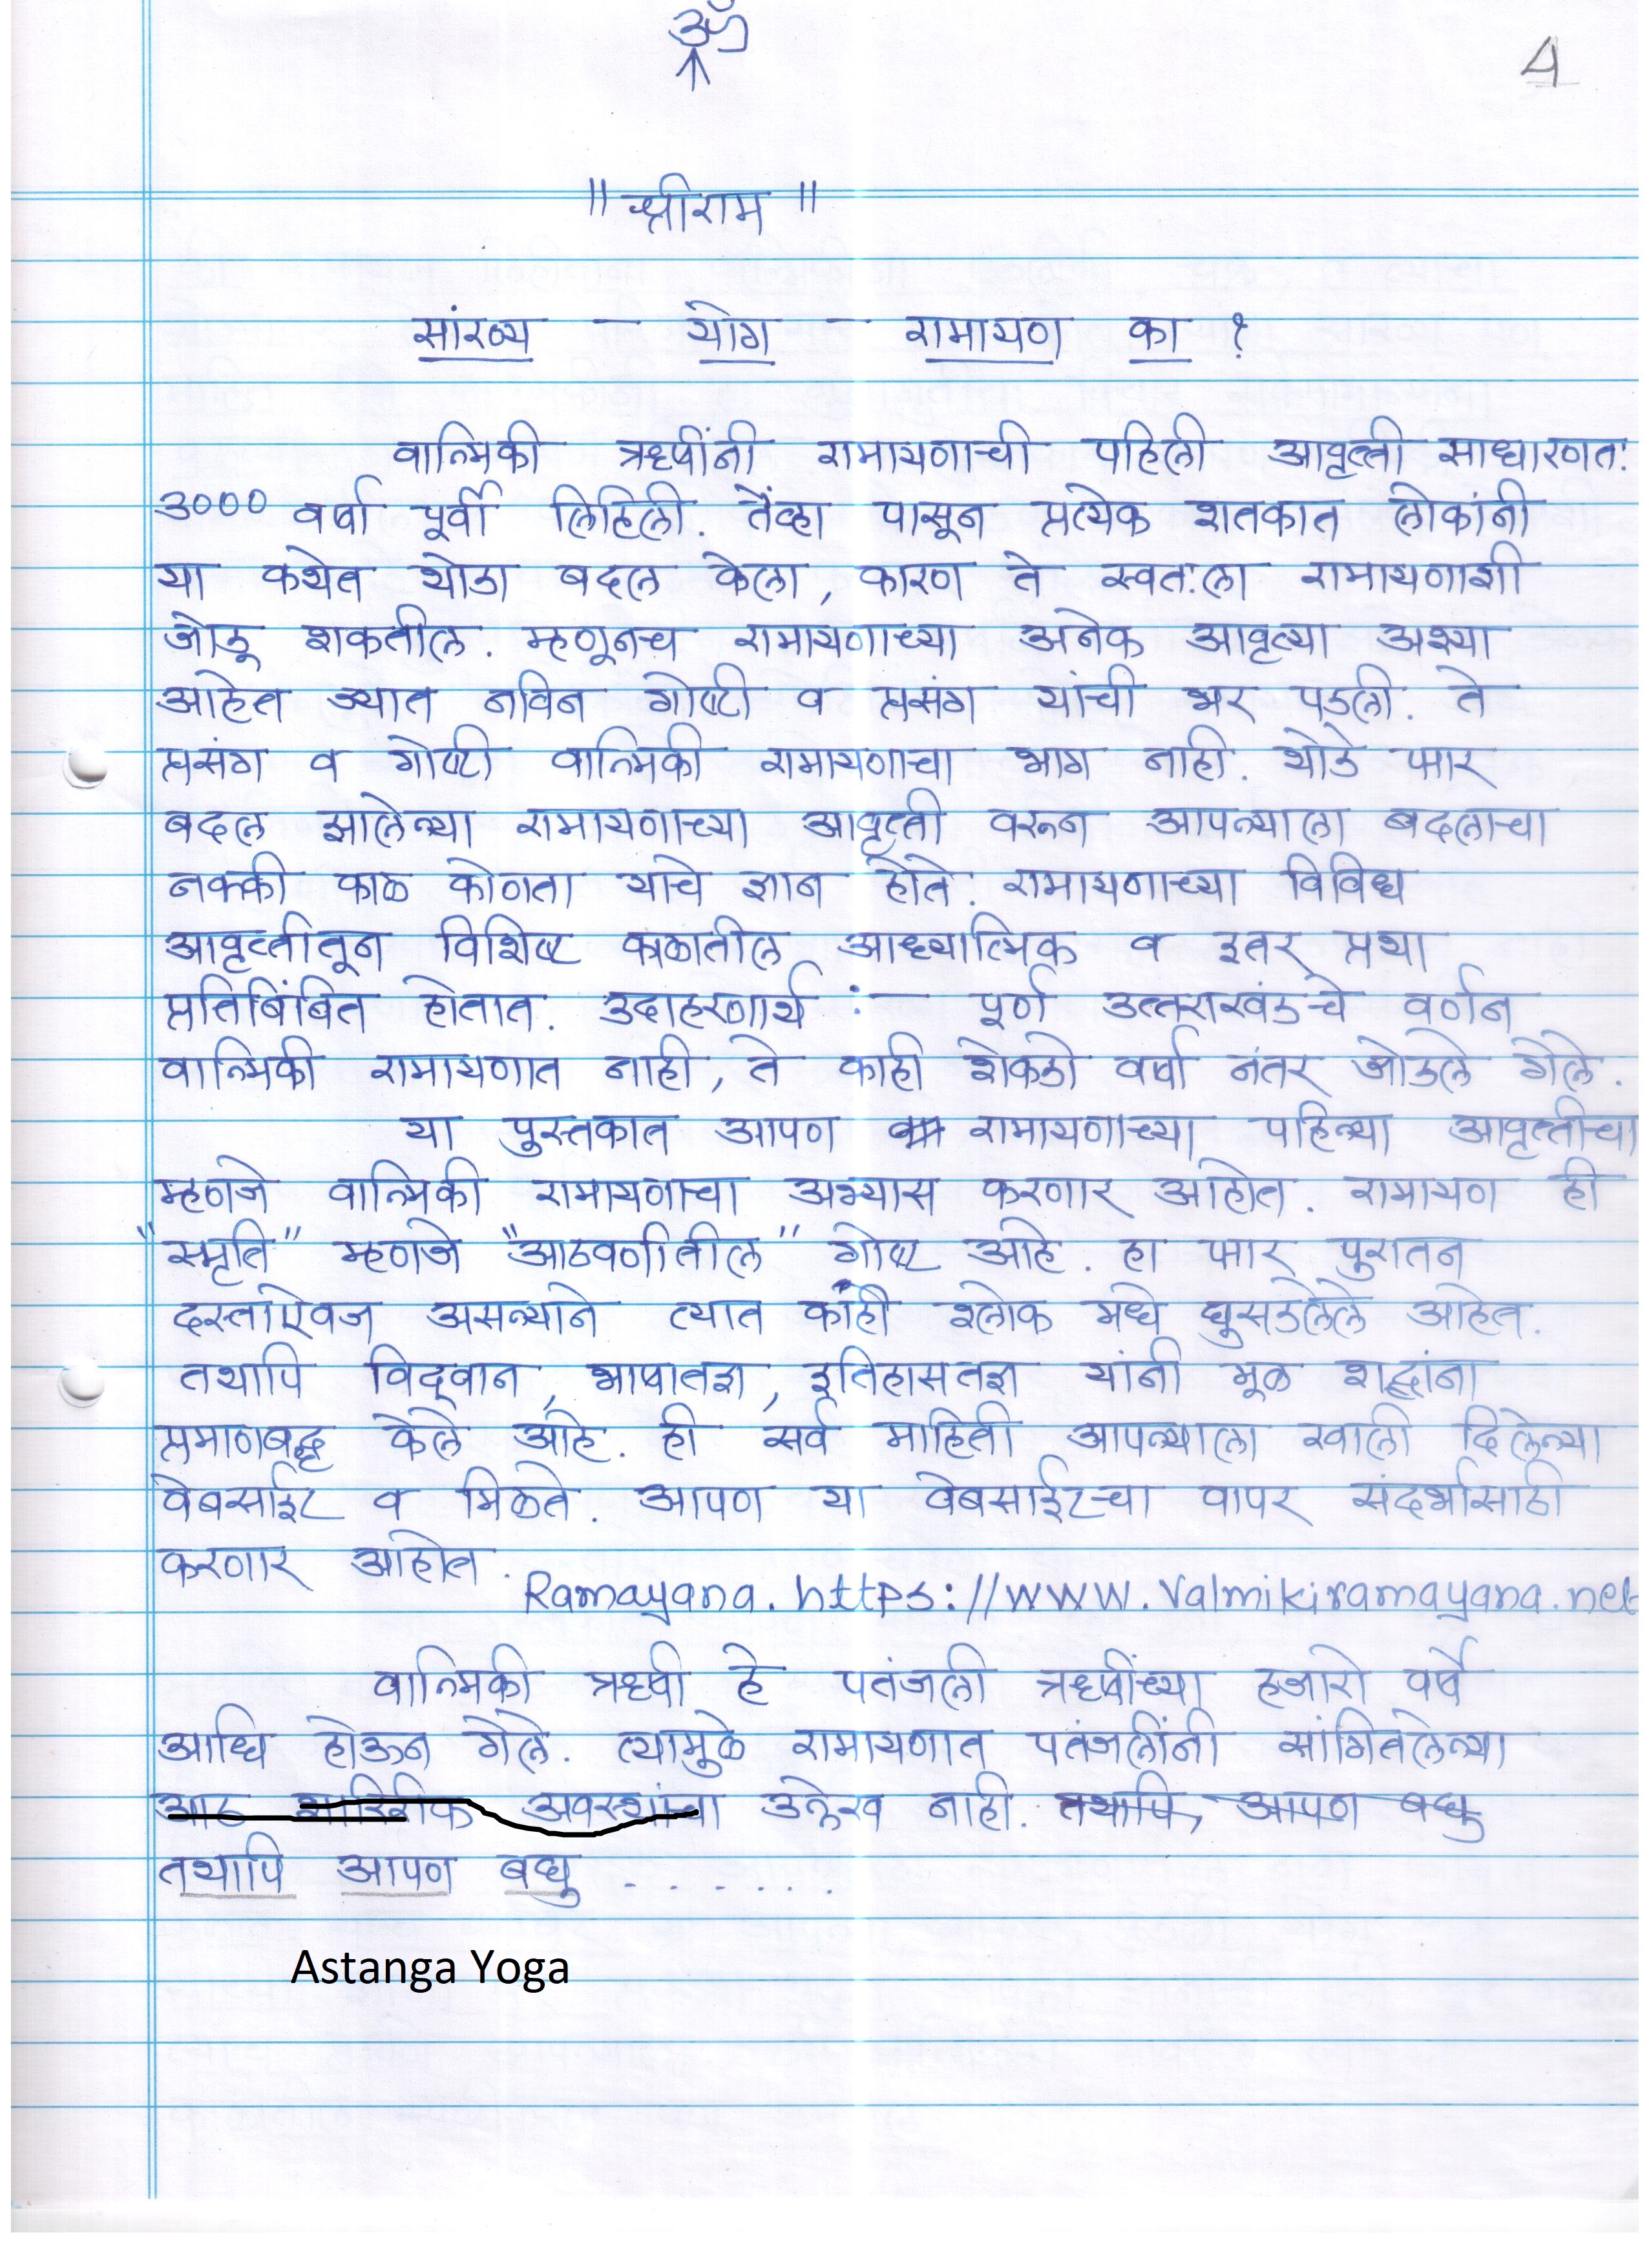 ॐ
4
" श्रीराम "
सांख्य - योग - रामायण का ?
वाल्मिकी ऋषींनी रामायणाची पहिली आवृत्ती साधारणत:
3000 वर्षा पूर्वी लिहिली. तेंव्हा पासून प्रत्येक शतकात लोकांनी
या कथेत थोडा बदल केला, कारण ते स्वत:ला रामायणाशी
जोडू शकतील. म्हणूनच रामायणाच्या अनेक आवृत्या अश्या
आहेत ज्यात नविन गोष्टी व प्रसंग यांची भर पडली. ते
प्रसंग व गोष्टी वाल्मिकी रामायणाचा भाग नाही. थोडे फार
बदल झालेल्या रामायणाच्या आवृत्ती वरून आपल्याला बदलाचा
नक्की काळ कोणता याचे ज्ञान होते. रामायणाच्या विविध
आवृत्तीतून विशिष्ट काळातील आध्यात्मिक व इतर प्रथा
प्रतिबिंबित होतात. उदाहरणार्थ :- पूर्ण उत्तराखंडचे वर्णन
वाल्मिकी रामायणात नाही, ते काही शेकडो वर्षा नंतर जोडले गेले.
या पुस्तकात आपण रामायणाच्या पहिल्या आवृत्तीचा
म्हणजे वाल्मिकी रामायणाचा अभ्यास करणार आहोत. रामायण ही
"स्मृति" म्हणजे "आठवणीतील" गोष्ट आहे. हा फार पुरातन
दस्ताऐवज असल्याने त्यात कांही श्लोक मधे घुसडलेले आहेत.
तथापि विद्वान, भाषातज्ञ, इतिहासतज्ञ यांनी मूळ शब्दांना
प्रमाणबद्ध केले आहे. ही सर्व माहिती आपल्याला खाली दिलेल्या
वेबसाईट व मिळते. आपण या वेबसाईटचा वापर संदर्भासाठी
करणार आहोत.
Ramayana. https://www.Valmikiramayana.net
वाल्मिकी ऋषी हे पतंजली ऋषींच्या हजारो वर्षे
आधि होऊन गेले. त्यामुळे रामायणात पतंजलींनी सांगितलेल्या
आठ शारिरीक अवस्थांचा उल्लेख नाही. तथापि, आपण बघु
तथापि आपण बघु . . . . . .
Astanga Yoga